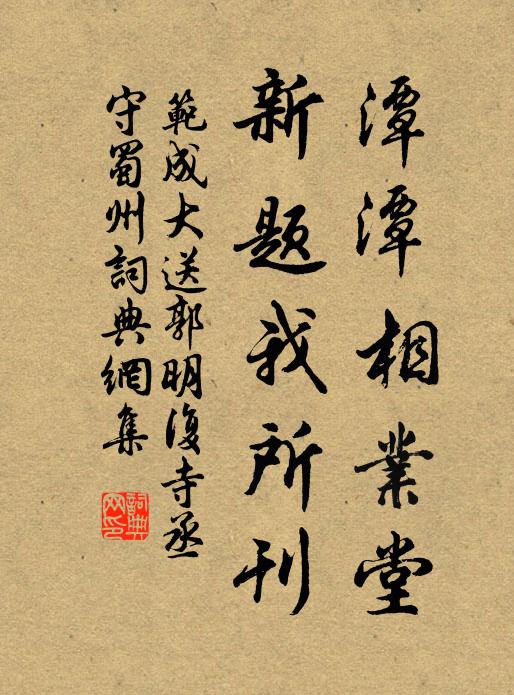 潭潭相業堂
新题我所刊
範成大送郭明復寺丞
守蜀州詞典網集
詞典網印